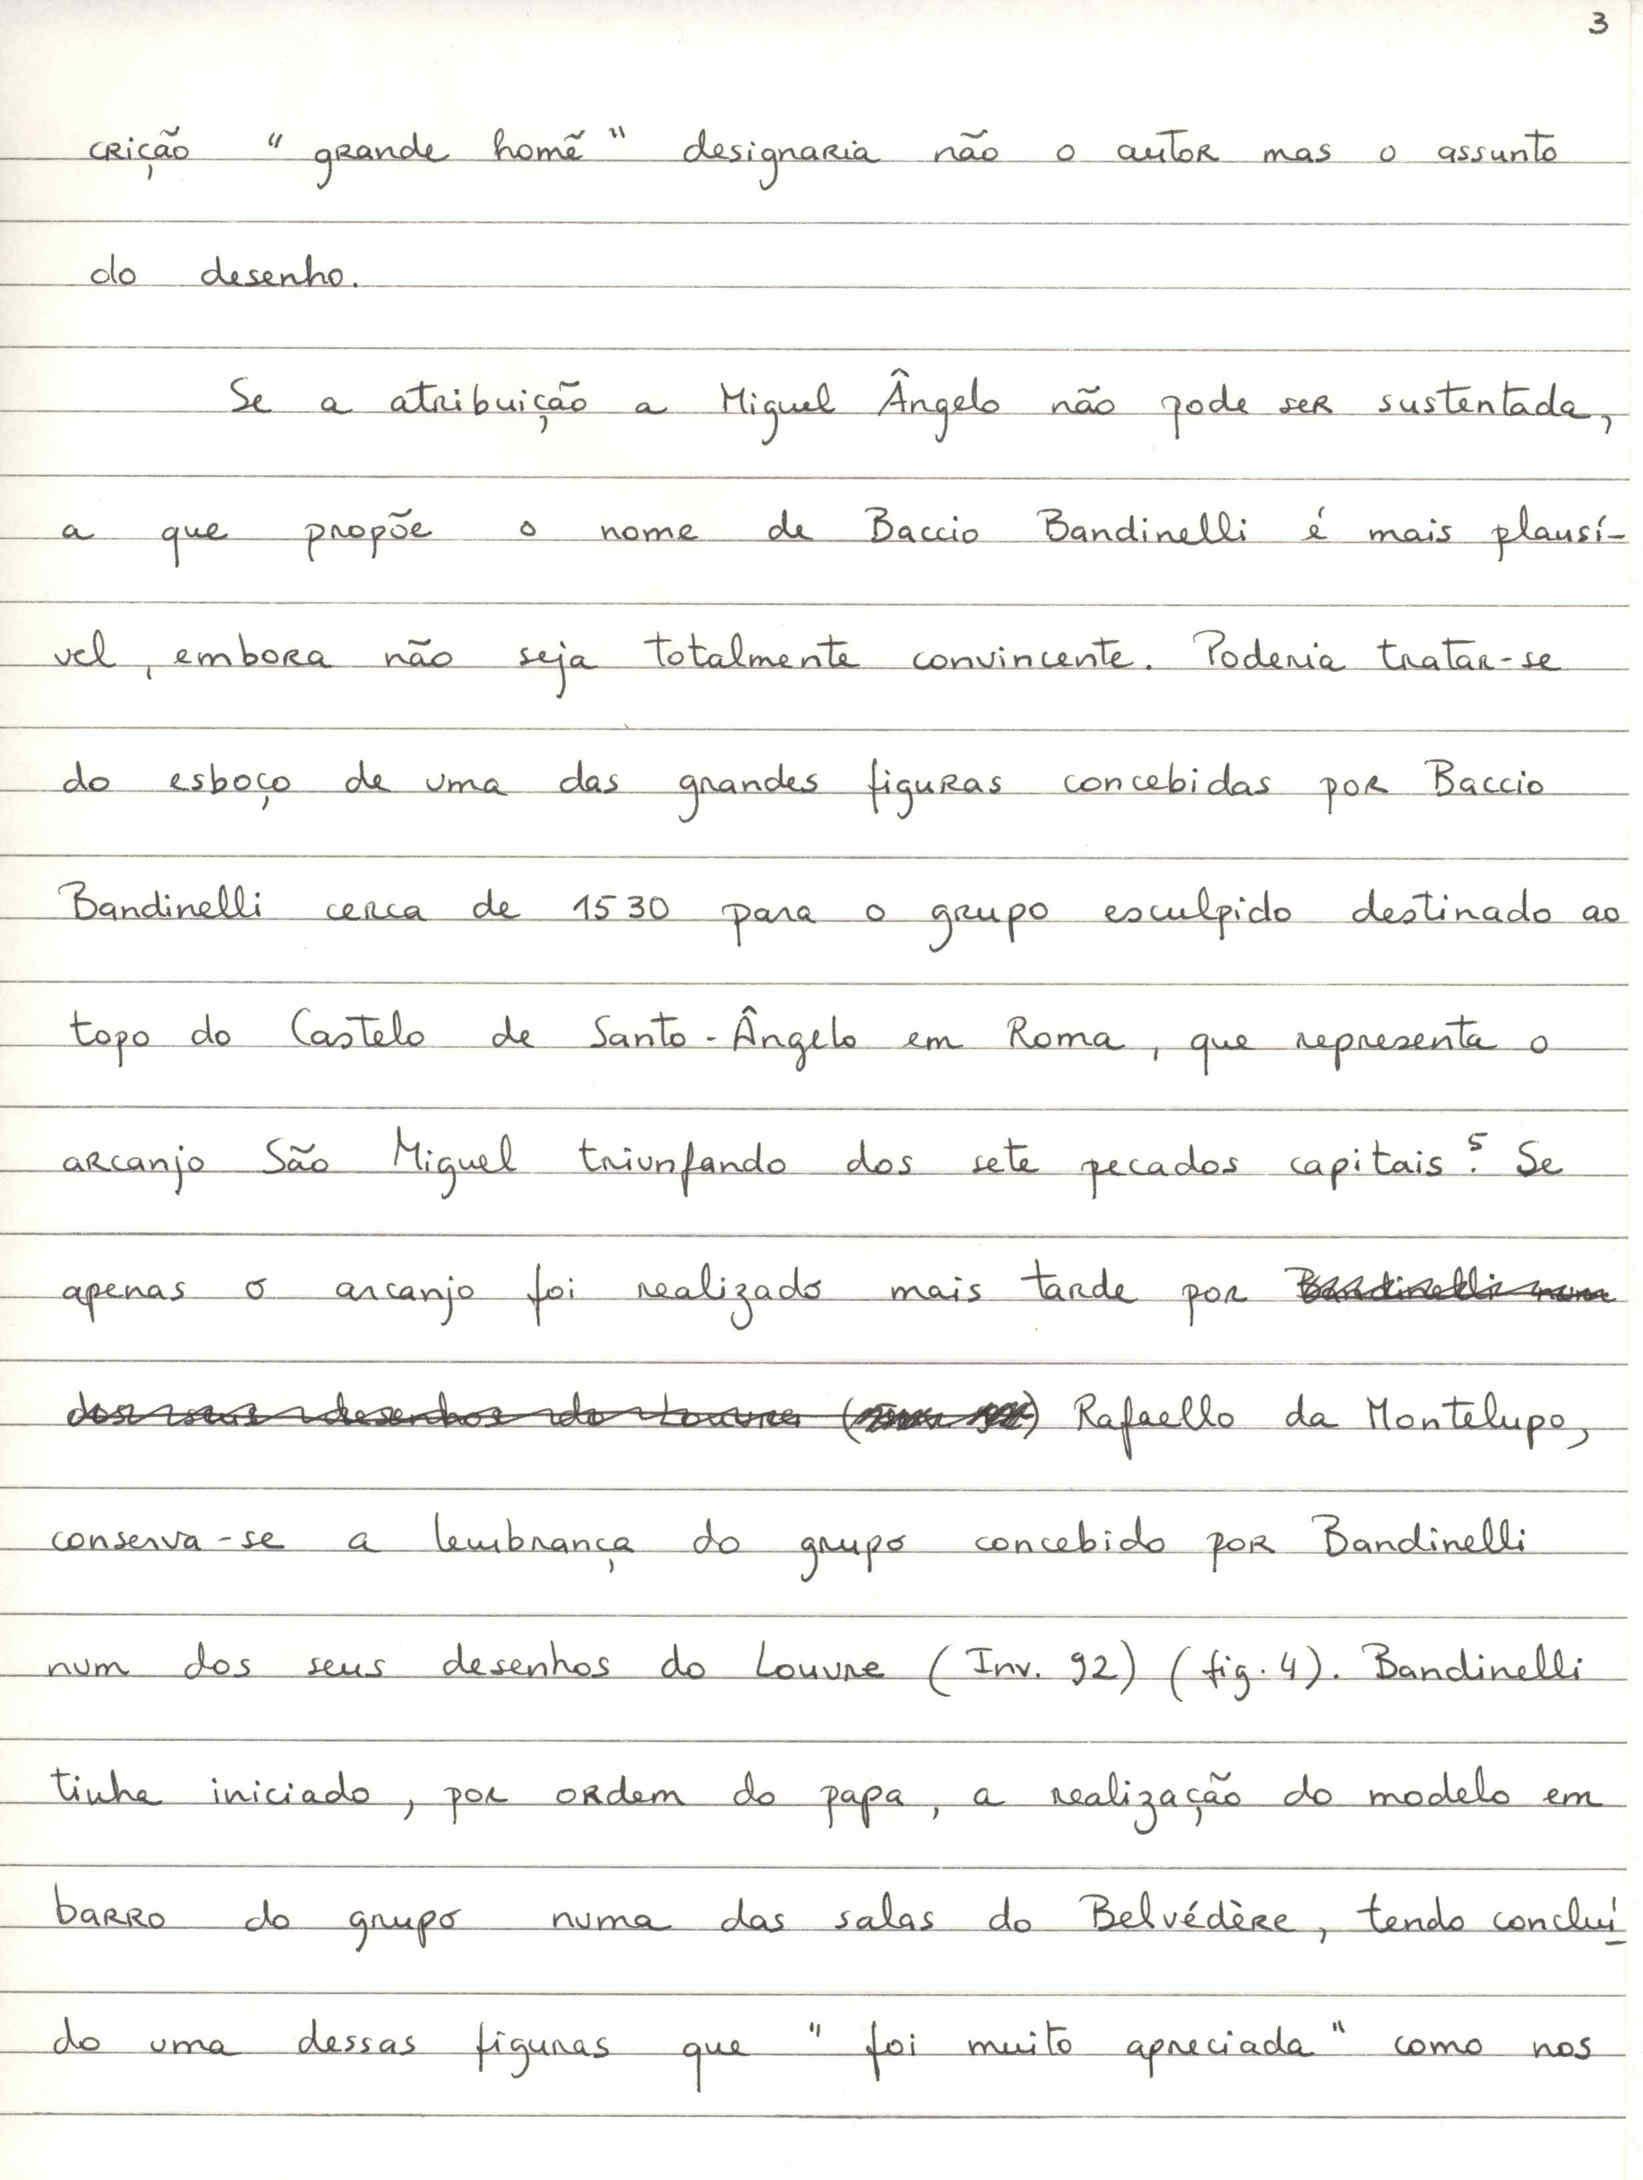 3
crição "grande homẽ" designaria não o autor mas o assunto
do desenho.
Se a atribuição a Miguel Ângelo não pode ser sustentada,
a que propõe o nome de Baccio Bandinelli é mais plausí-
vel, embora não seja totalmente convincente. Poderia tratar-se
do esboço de uma das grandes figuras concebidas por Baccio
Bandinelli cerca de 1530 para o grupo esculpido destinado ao
topo do Castelo de Santo-Ângelo em Roma, que representa o
arcanjo São Miguel triunfando dos sete pecados capitais⁵. Se
apenas o arcanjo foi realizado mais tarde por Bandinelli num
dos seus desenhos do Louvre (Inv. 92) Rafaello da Montelupo,
conserva-se a lembrança do grupo concebido por Bandinelli
num dos seus desenhos do Louvre (Inv. 92) (fig. 4). Bandinelli
tinha iniciado, por ordem do papa, a realização do modelo em
barro do grupo numa das salas do Belvédère, tendo concluí
do uma dessas figuras que "foi muito apreciada" como nos